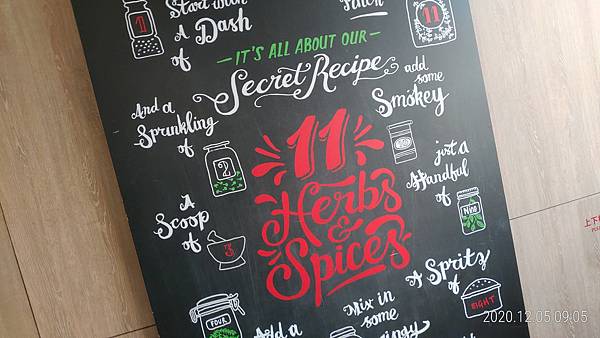 Start with
A
Dash
of
1
Pinch
11
IT'S ALL ABOUT OUR
Secret Recipe
add
some
Smokey
And a
Sprinkling
of
2
11
Herbs
&
Spices
just a
Handful
of
Nine
A
Scoop
of
3
A Spritz
of
EIGHT
FOUR
Add a
Mix in
some
上下
2020.12.05 09:05